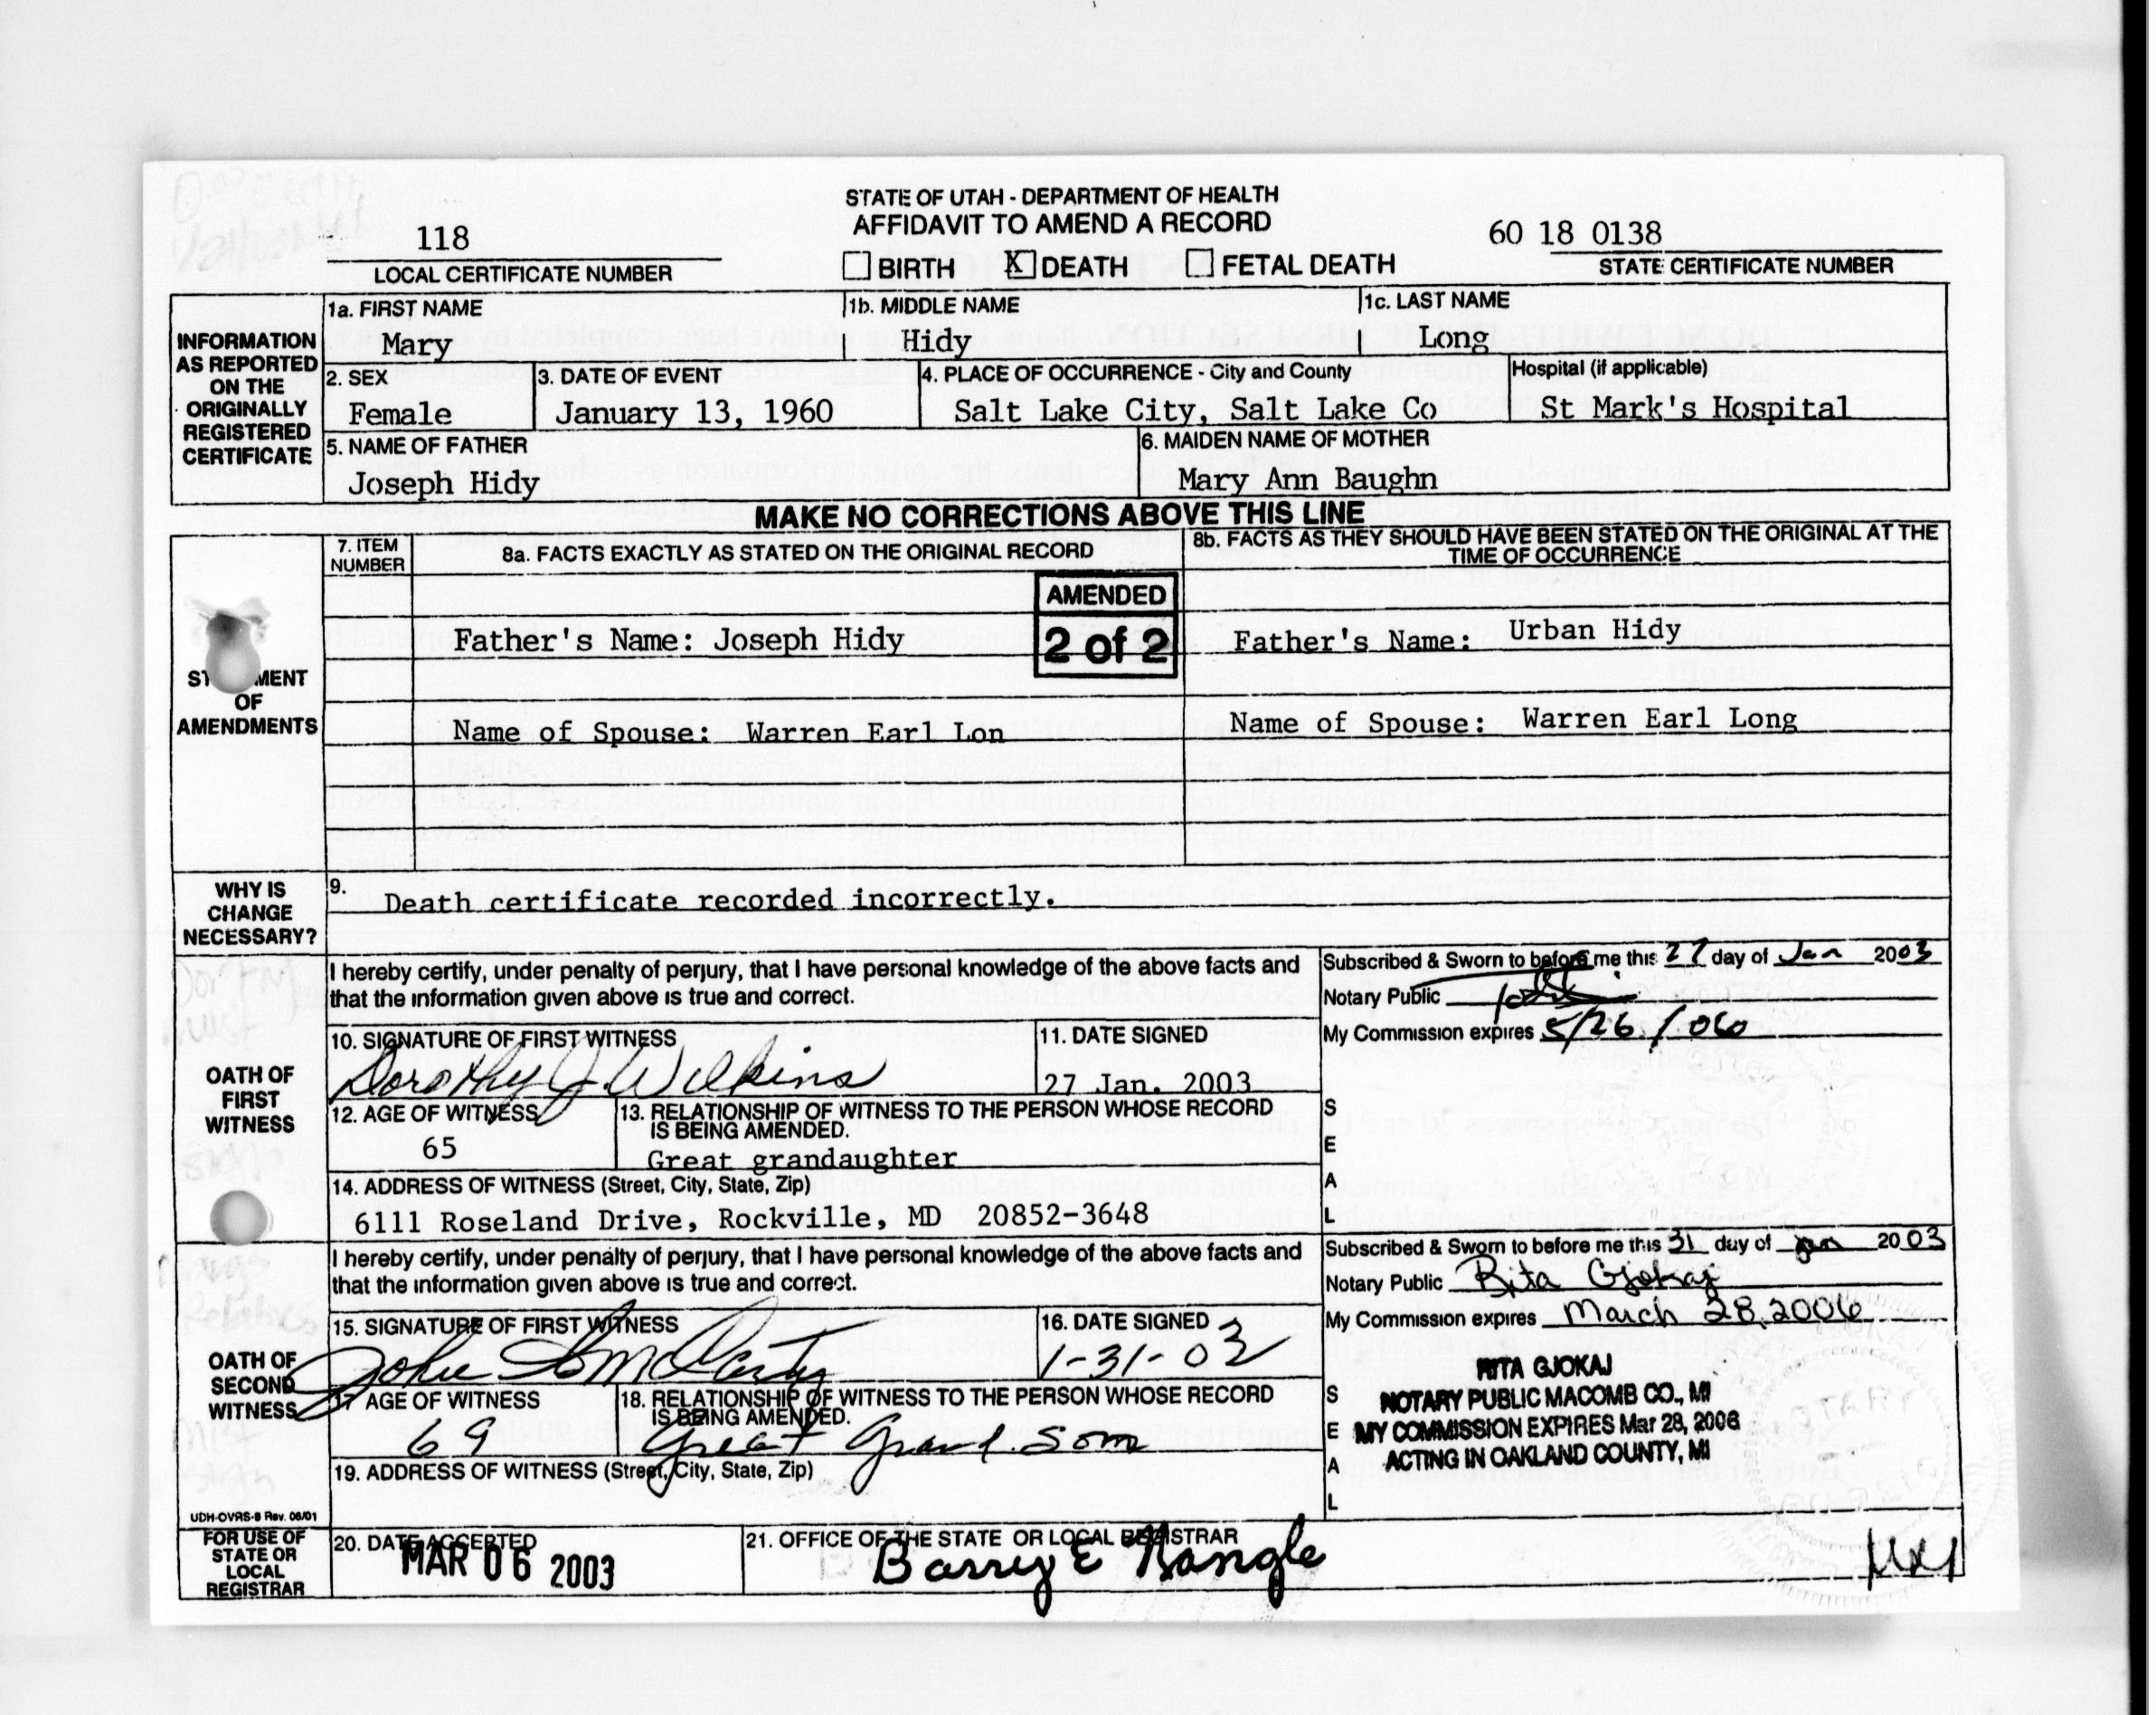 STATE OF UTAH - DEPARTMENT OF HEALTH
AFFIDAVIT TO AMEND A RECORD
118
60 18 0138
LOCAL CERTIFICATE NUMBER
BIRTH X DEATH FETAL DEATH
STATE CERTIFICATE NUMBER
INFORMATION AS REPORTED ON THE ORIGINALLY REGISTERED CERTIFICATE
1a. FIRST NAME 1b. MIDDLE NAME 1c. LAST NAME
Mary Hidy Long
2. SEX 3. DATE OF EVENT 4. PLACE OF OCCURRENCE - City and County Hospital (if applicable)
Female January 13, 1960 Salt Lake City, Salt Lake Co St Mark's Hospital
5. NAME OF FATHER 6. MAIDEN NAME OF MOTHER
Joseph Hidy Mary Ann Baughn
MAKE NO CORRECTIONS ABOVE THIS LINE
7. ITEM NUMBER 8a. FACTS EXACTLY AS STATED ON THE ORIGINAL RECORD 8b. FACTS AS THEY SHOULD HAVE BEEN STATED ON THE ORIGINAL AT THE TIME OF OCCURRENCE
AMENDED
2 of 2
Father's Name: Joseph Hidy Father's Name: Urban Hidy
OF
AMENDMENTS
Name of Spouse: Warren Earl Lon Name of Spouse: Warren Earl Long
WHY IS CHANGE NECESSARY?
9. Death certificate recorded incorrectly.
OATH OF FIRST WITNESS
I hereby certify, under penalty of perjury, that I have personal knowledge of the above facts and
that the information given above is true and correct.
Subscribed & Sworn to before me this 27 day of Jan 2003
Notary Public
My Commission expires 5/26/06
10. SIGNATURE OF FIRST WITNESS 11. DATE SIGNED
Dorothy J. Wilkins 27 Jan. 2003
12. AGE OF WITNESS 13. RELATIONSHIP OF WITNESS TO THE PERSON WHOSE RECORD IS BEING AMENDED.
65 Great grandaughter
14. ADDRESS OF WITNESS (Street, City, State, Zip)
6111 Roseland Drive, Rockville, MD 20852-3648
S E A L
OATH OF SECOND WITNESS
I hereby certify, under penalty of perjury, that I have personal knowledge of the above facts and
that the information given above is true and correct.
Subscribed & Sworn to before me this 31 day of Jan 2003
Notary Public Rita Gjokaj
My Commission expires March 28, 2006
15. SIGNATURE OF FIRST WITNESS 16. DATE SIGNED
John McCarty 1-31-03
17 AGE OF WITNESS 18. RELATIONSHIP OF WITNESS TO THE PERSON WHOSE RECORD IS BEING AMENDED.
69 Great Grand. Son
19. ADDRESS OF WITNESS (Street, City, State, Zip)
S E A L
RITA GJOKAJ
NOTARY PUBLIC MACOMB CO., MI
MY COMMISSION EXPIRES Mar 28, 2006
ACTING IN OAKLAND COUNTY, MI
UDH-OVRS-8 Rev. 06/01
FOR USE OF STATE OR LOCAL REGISTRAR
20. DATE ACCEPTED 21. OFFICE OF THE STATE OR LOCAL REGISTRAR
MAR 06 2003 Barry E Nangle